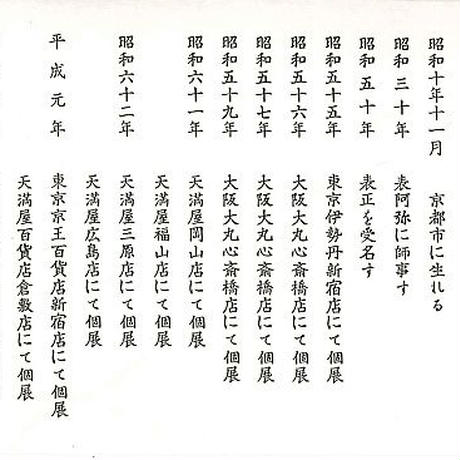 昭和十年十一月 京都市に生れる
昭和三十年 表阿弥に師事す
昭和五十年 表正を愛名す
昭和五十五年 東京伊勢丹新宿店にて個展
昭和五十六年 大阪大丸心斎橋店にて個展
昭和五十七年 大阪大丸心斎橋店にて個展
昭和五十九年 大阪大丸心斎橋店にて個展
昭和六十一年 天満屋岡山店にて個展
天満屋福山店にて個展
昭和六十二年 天満屋三原店にて個展
天満屋広島店にて個展
平成元年 東京京王百貨店新宿店にて個展
天満屋百貨店倉敷店にて個展